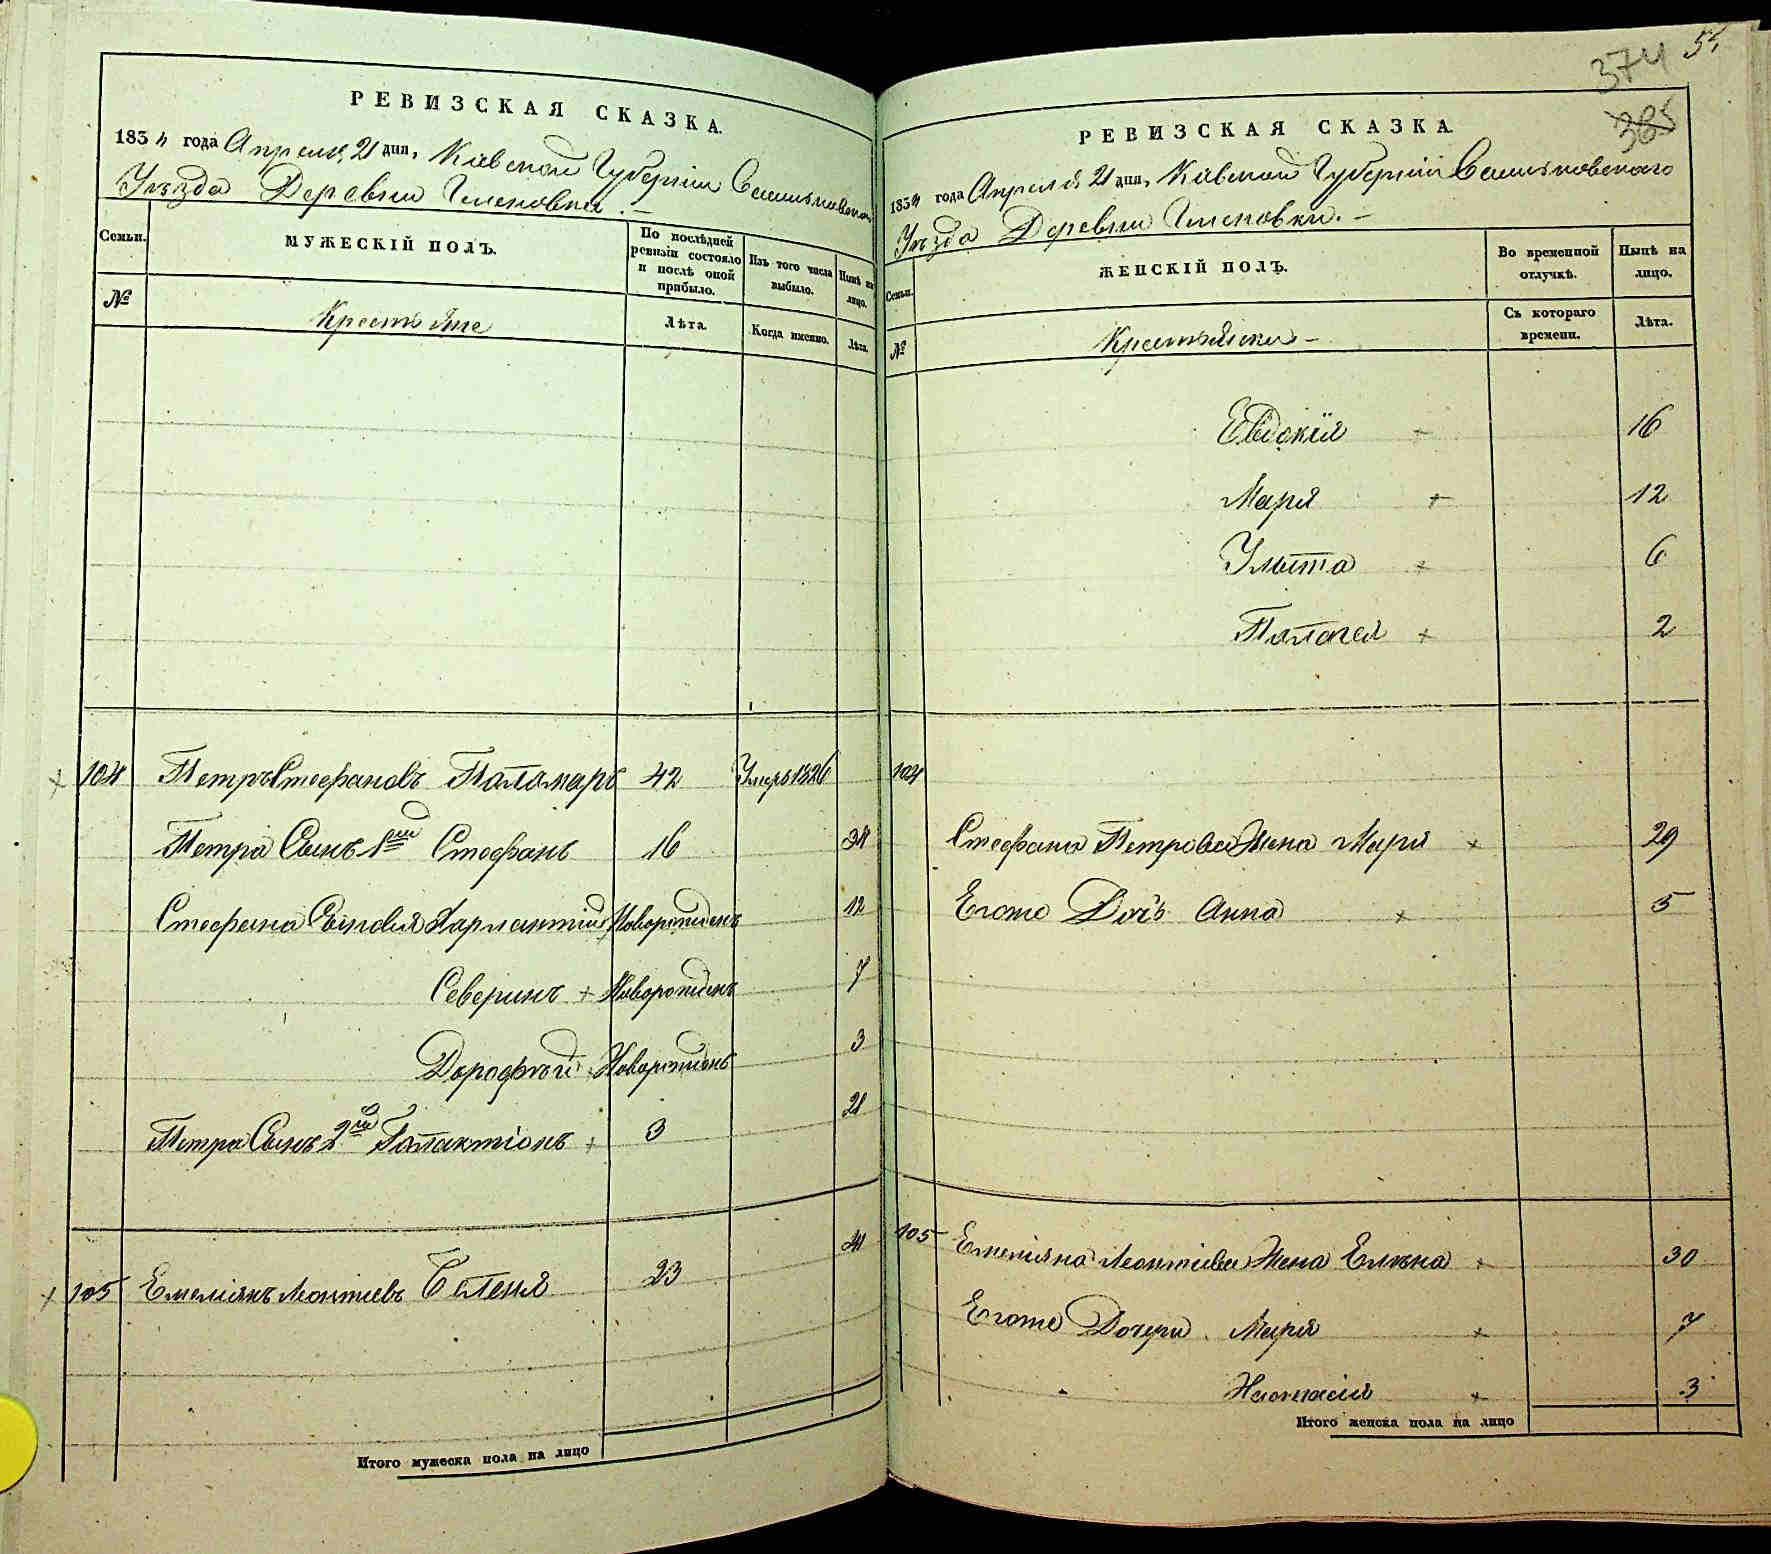 РЕВИЗСКАЯ СКАЗКА.
1834 года Апреля 21 дня, Кіевской Губерніи Сквирского
Уѣзда Деревни
Семьи.
МУЖЕСКІЙ ПОЛЪ.
По послѣдней ревизіи состояло и послѣ оной прибыло.
Изъ того числа выбыло.
Нынѣ на лицо.
№
Крестьяне
Лѣта.
Когда именно.
Лѣта.
104 Петръ Стефановъ Паламаръ 42 Умеръ 1826
Петра Сынъ 1й Стефанъ 16 34
Стефана Сыновья Новорожденъ 12
Северинъ Новорожденъ 7
Дорофтей Новорожденъ 3
Петра Сынъ 2й Галактіонъ 3 21
105 Емеліянъ Леонтіевъ 23 41
Итого мужеска пола на лицо
54
374
385
РЕВИЗСКАЯ СКАЗКА.
1834 года Апреля 21 дня, Кіевской Губерніи
Уѣзда Деревни
Семьи.
ЖЕНСКІЙ ПОЛЪ.
Во временной отлучкѣ.
Нынѣ на лицо.
№
Крестьянки
Съ котораго времени.
Лѣта.
Евдокія 16
Марія 12
Улита 6
Палагея 2
104
Стефана Петрова Жена Марія 29
Егоже Дочь Анна 5
105 Емеліяна Леонтіева Жена Елена 30
Егоже Дочери Марія 7
Настасія 3
Итого женска пола на лицо